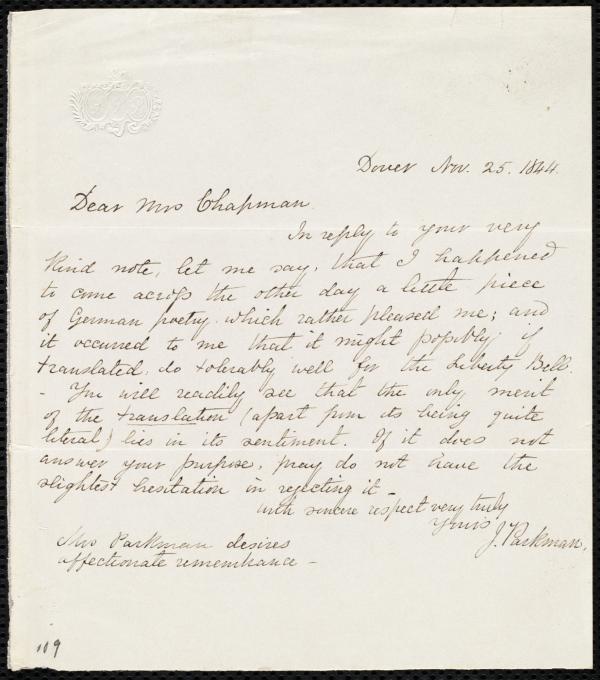 Dover Nov. 25. 1844.
Dear Mrs Chapman.
In reply to your very
kind note, let me say, that I happened
to come across the other day a little piece
of German poetry which rather pleased me; and
it occurred to me that it might possibly, if
translated, do tolerably well for the Liberty Bell.
- You will readily see that the only merit
of the translation (apart from its being quite
literal) lies in its sentiment. If it does not
answer your purpose, pray do not have the
slightest hesitation in rejecting it -
With sincere respect very truly
Yours
J. Parkman.
Mrs Parkman desires
affectionate remembrance -
109